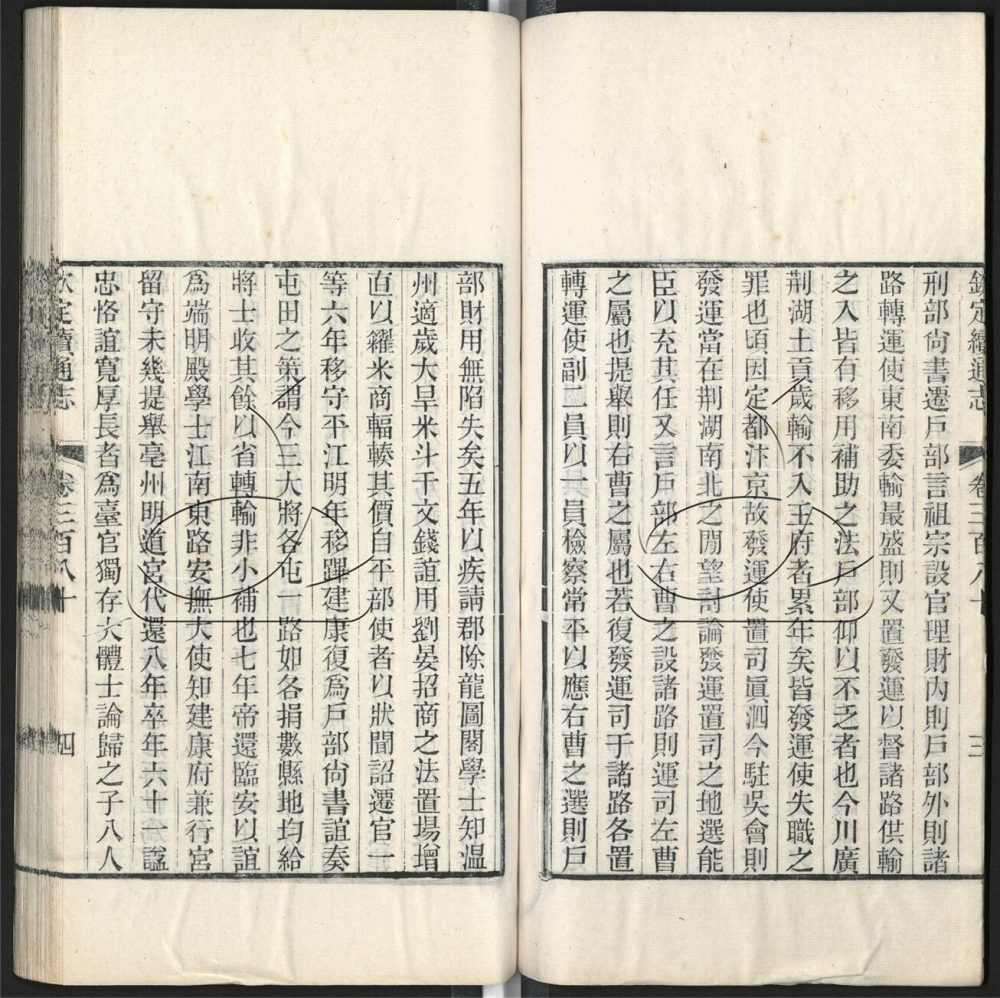 欽定續通志 卷三百八十 三
刑部尚書遷戶部言祖宗設官理財內則戶部外則諸
路轉運使東南委輸最盛則又置發運以督諸路供輸
之入皆有移用補助之法戶部仰以不乏者也今川廣
荆湖土貢歲輸不入王府者累年矣皆發運使失職之
罪也頃因定都汴京故發運使置司眞泗今駐吳會則
發運當在荆湖南北之閒望討論發運置司之地選能
臣以充其任又言戶部左右曹之設諸路則運司左曹
之屬也提舉則右曹之屬也若復發運司于諸路各置
轉運使副二員以一員檢察常平以應右曹之選則戶
部財用無陷失矣五年以疾請郡除龍圖閣學士知溫
州適歲大旱米斗千文錢誼用劉晏招商之法置場增
直以糴米商輻輳其價自平部使者以狀聞詔遷官一
等六年移守平江明年移蹕建康復爲戶部尚書誼奏
屯田之策謂今三大將各屯一路如各捐數縣地均給
將士收其餘以省轉輸非小補也七年帝還臨安以誼
爲端明殿學士江南東路安撫大使知建康府兼行宮
留守未幾提舉亳州明道宮代還八年卒年六十一諡
忠恪誼寬厚長者爲臺官獨存大體士論歸之子八人
欽定續通志 卷三百八十 四